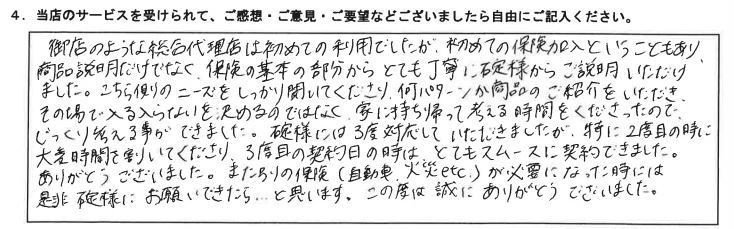 4．当店のサービスを受けられて、ご感想・ご意見・ご要望などございましたら自由にご記入ください。
御店のような総合代理店は初めての利用でしたが、初めての保険加入ということもあり、
商品説明だけでなく、保険の基本の部分からとても丁寧に碇様からご説明いただけ
ました。こちら側のニーズをしっかり聞いてくださり、何パターンか商品のご紹介をいただき、
その場で入る入らないを決めるのではなく、家に持ち帰って考える時間をくださったので、
じっくり考える事ができました。碇様には3度対応していただきましたが、特に2度目の時に
大変時間を割いてくださり、3度目の契約日の時は、とてもスムースに契約できました。
ありがとうございました。また別の保険（自動車、火災etc.）が必要になった時には
是非 碇様にお願いできたら…と思います。この度は誠にありがとうございました。